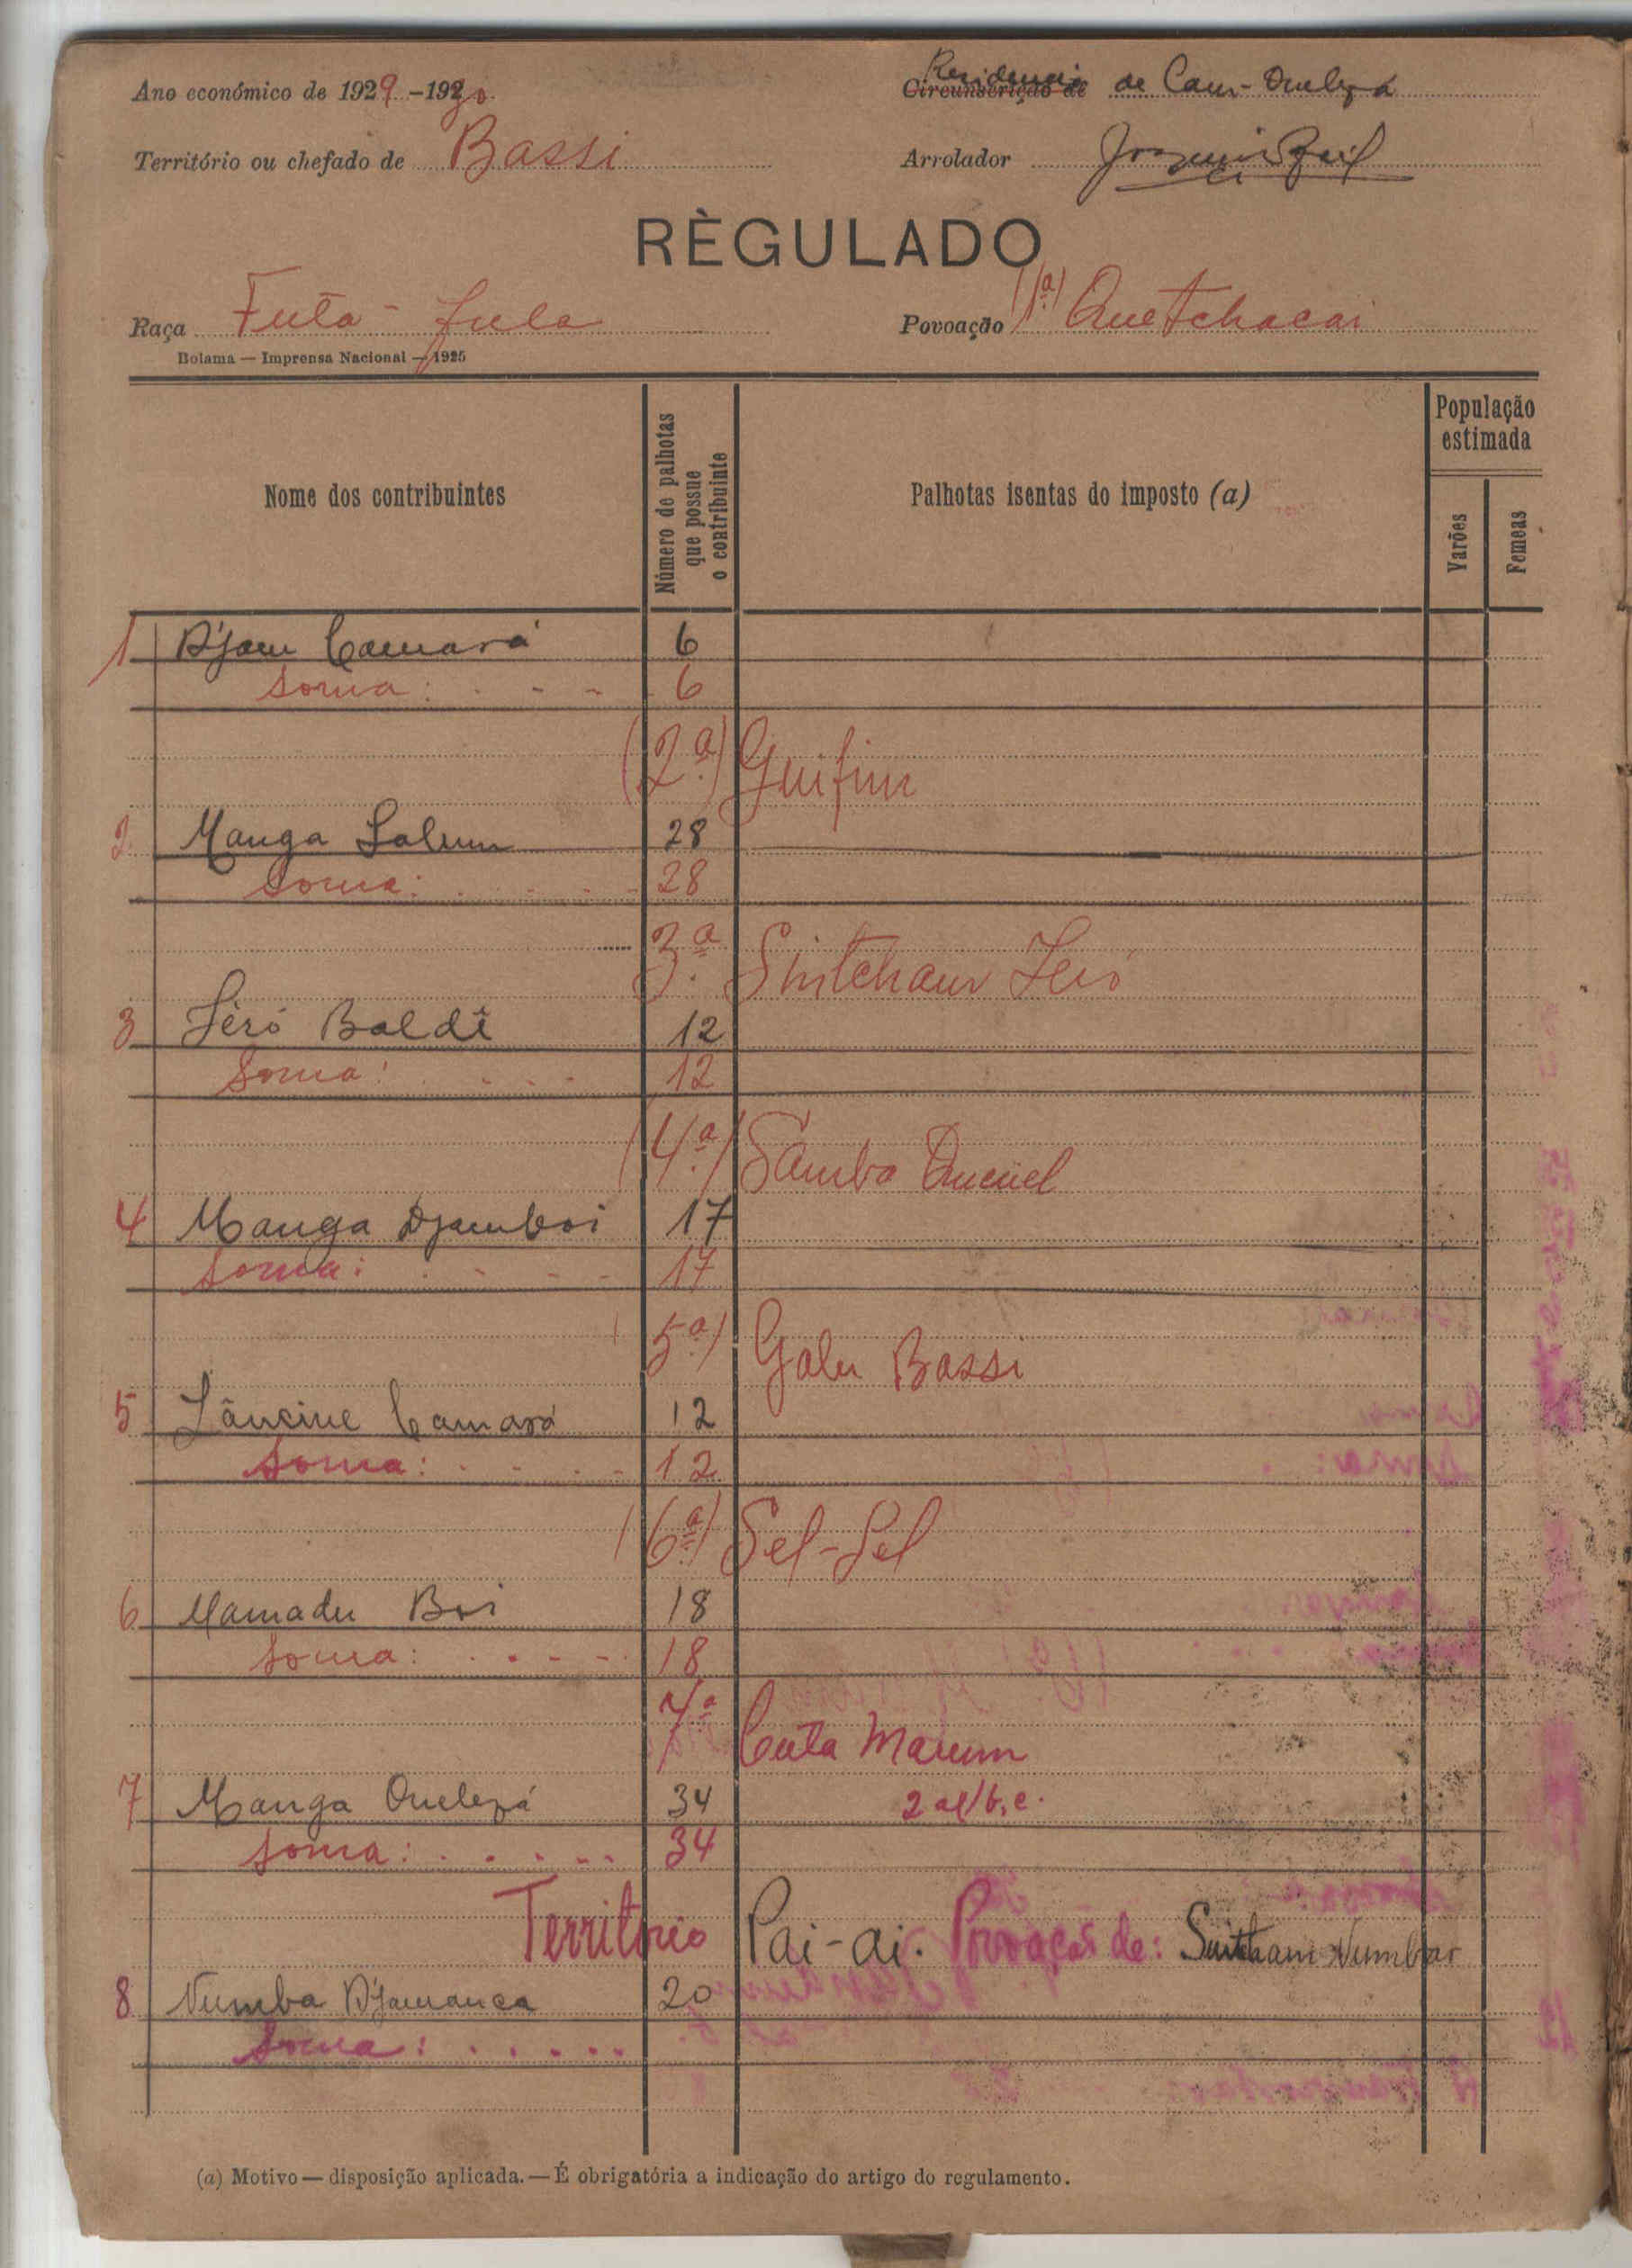 Ano económico de 1929-1930
Residencia de Cam-Quelefá
Circunscrição de
Território ou chefado de Bassi
Arrolador
RÈGULADO
Raça Futa-fula
Povoação (1ª) Quetchacai
Bolama — Imprensa Nacional — 1925
Nome dos contribuintes
Número de palhotas que possue o contribuinte
Palhotas isentas do imposto (a)
População estimada
Varões
Femeas
1 D'jam Camará 6
Soma: 6
(2ª) Guifim
2 Manga Salum 28
Soma: 28
3ª Sintcham Séró
3 Séró Baldê 12
Soma: 12
(4ª) Samba Queuel
4 Manga Djamboi 17
Soma: 17
(5ª) Galu Bassi
5 Lâncine Camará 12
Soma: 12
(6ª) Sel-Sel
6 Mamadu Boi 18
Soma: 18
7ª Cuta Maum
7 Manga Quelefá 34 2 al/b.c.
Soma: 34
Territorio Pai-ai. Povoação de: Sintcham Numbar
8 Numba D'jamanca 20
Soma:
(a) Motivo — disposição aplicada. — É obrigatória a indicação do artigo do regulamento.